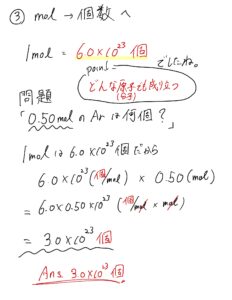 ③ mol → 個数へ
1mol = 6.0×10²³ 個
でしたね。
point
どんな原子でも成り立つ
(分子)
問題
「0.50molのArは何個？」
1molは6.0×10²³個だから
6.0×10²³(個/mol) × 0.50(mol)
=6.0×0.50×10²³ (個/mol × mol)
= 3.0×10²³個
Ans 3.0×10²³個